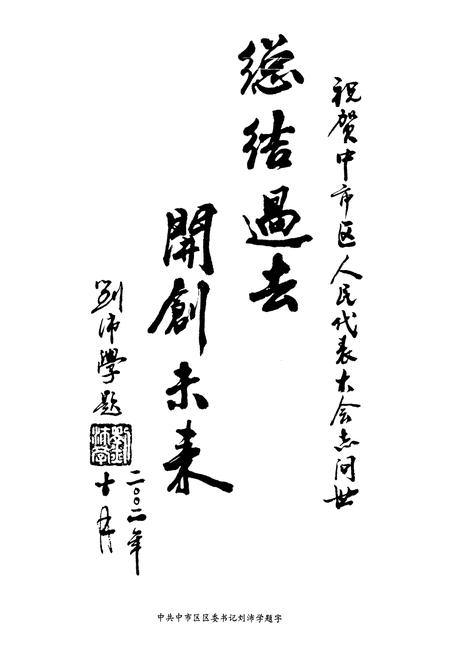 祝贺中市区人民代表大会志问世
總結過去
開創未来
刘沛學题
二〇〇二年
十月
中共中市区区委书记刘沛学题字